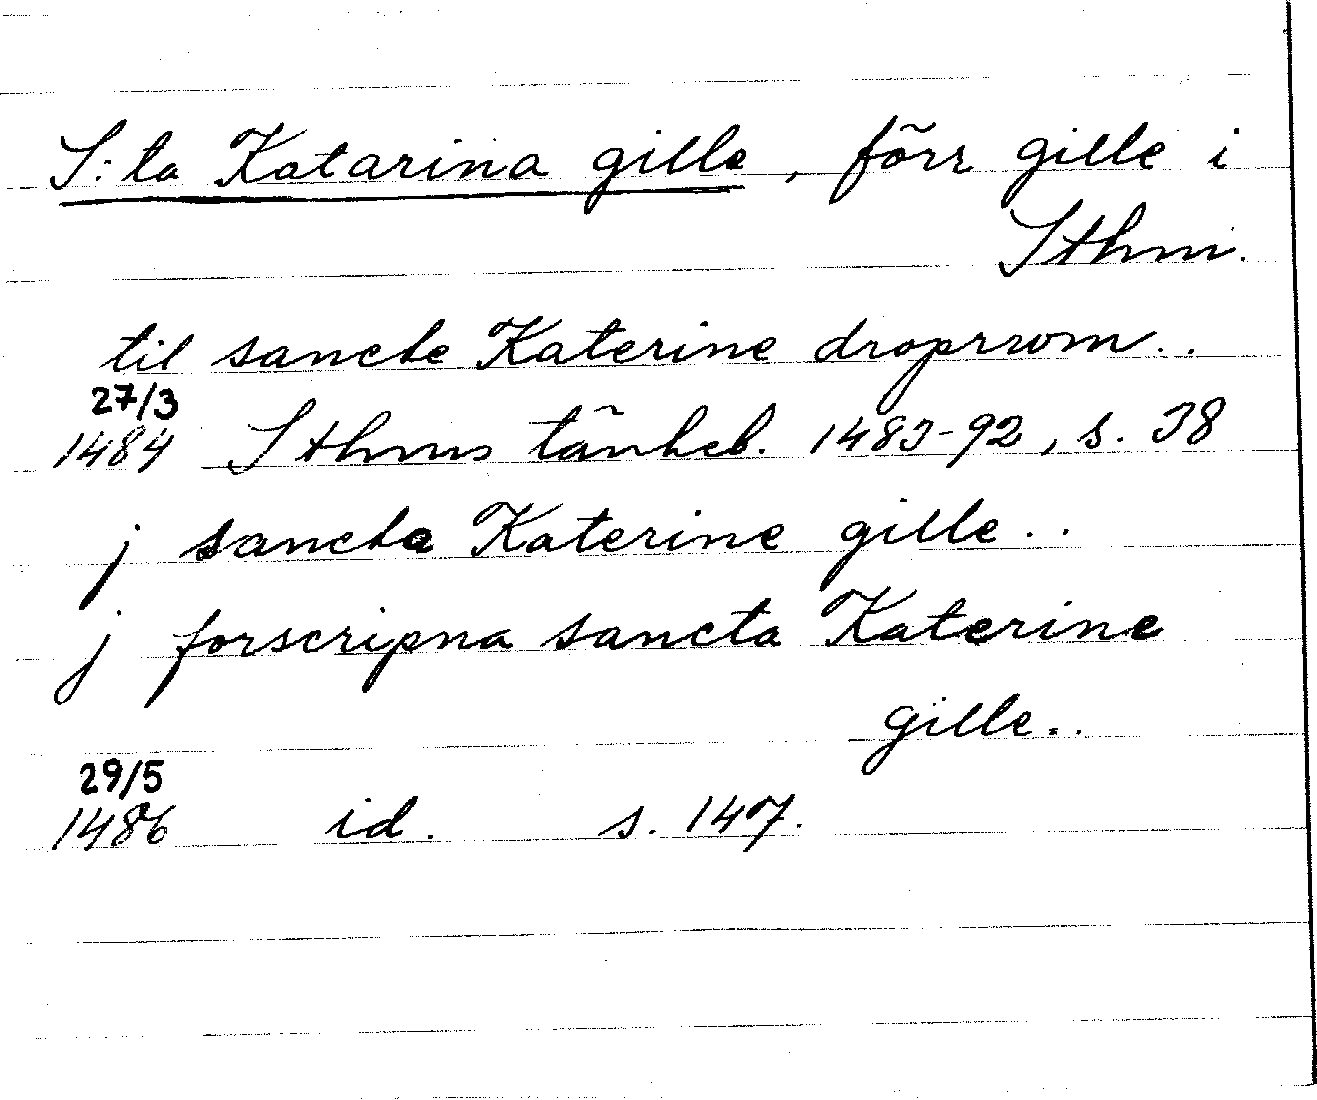 S:ta Katarina gille, förr gille i
Sthm.
til sancte Katerine droprwm..
27/3
1484 Sthms tänkeb. 1483-92, s. 38
j sancta Katerine gille..
j forscripna sancta Katerine
gille..
29/5
1486 id. s. 147.